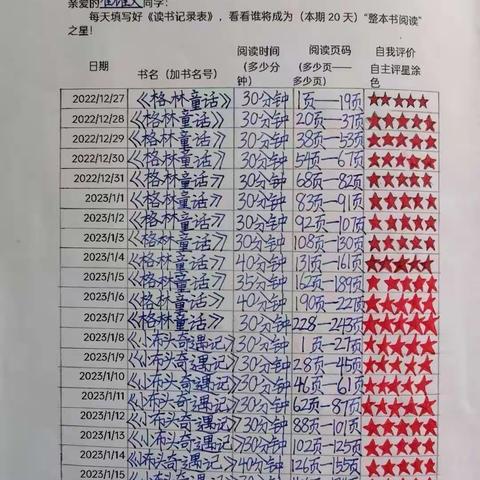 亲爱的崔雅文同学:
每天填写好《读书记录表》,看看谁将成为(本期 20 天)“整本书阅读”
之星!
日期 书名(加书名号) 阅读时间(多少分钟) 阅读页码(多少页——多少页) 自我评价 自主评星涂色
2022/12/27 《格林童话》 30分钟 1页—19页 ★★★★★
2022/12/28 《格林童话》 30分钟 20页—37页 ★★★★★
2022/12/29 《格林童话》 30分钟 38页—53页 ★★★★★
2022/12/30 《格林童话》 30分钟 54页—67页 ★★★★★
2022/12/31 《格林童话》 30分钟 68页—82页 ★★★★★
2023/1/1 《格林童话》 30分钟 83页—91页 ★★★★★
2023/1/2 《格林童话》 30分钟 92页—107页 ★★★★★
2023/1/3 《格林童话》 30分钟 108页—130页 ★★★★★
2023/1/4 《格林童话》 40分钟 131页—161页 ★★★★★
2023/1/5 《格林童话》 35分钟 162页—189页 ★★★★★
2023/1/6 《格林童话》 40分钟 190页—227页 ★★★★★
2023/1/7 《格林童话》 30分钟 228—243页 ★★★★★
2023/1/8 《小布头奇遇记》 30分钟 1页—27页 ★★★★★
2023/1/9 《小布头奇遇记》 30分钟 28页—45页 ★★★★★
2023/1/10 《小布头奇遇记》 30分钟 46页—61页 ★★★★★
2023/1/11 《小布头奇遇记》 30分钟 62页—87页 ★★★★★
2023/1/12 《小布头奇遇记》 30分钟 88页—101页 ★★★★★
2023/1/13 《小布头奇遇记》 30分钟 102页—125页 ★★★★★
2023/1/14 《小布头奇遇记》 40分钟 126页—155页 ★★★★★
2023/1/15